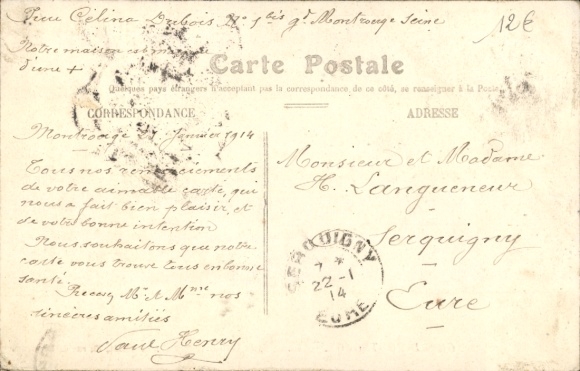 Rue Célina Dubois No 5bis gd Montrouge Seine
12€
Notre maison est
d'une +
Carte Postale
Quelques pays étrangers n'acceptant pas la correspondance, de ce côté, se renseigner à la Poste
CORRESPONDANCE
ADRESSE
Montrouge 21 Janvier 1914
Tous nos remerciements
de votre aimable carte, qui
nous a fait bien plaisir, et
de votre bonne intention
Nous souhaitons que notre
carte vous trouve tous en bonne
santé.
Recevez Mr et Mme nos
sincères amitiés
Paul Henry
Monsieur et Madame
H. Langueneur
Serquigny
Eure
SERQUIGNY
22-1
14
EURE